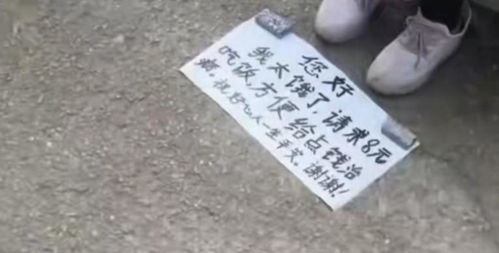 您好
我太饿了，请求8元
吃饭，方便给点钱治
病。祝好心人一生平安。谢谢！